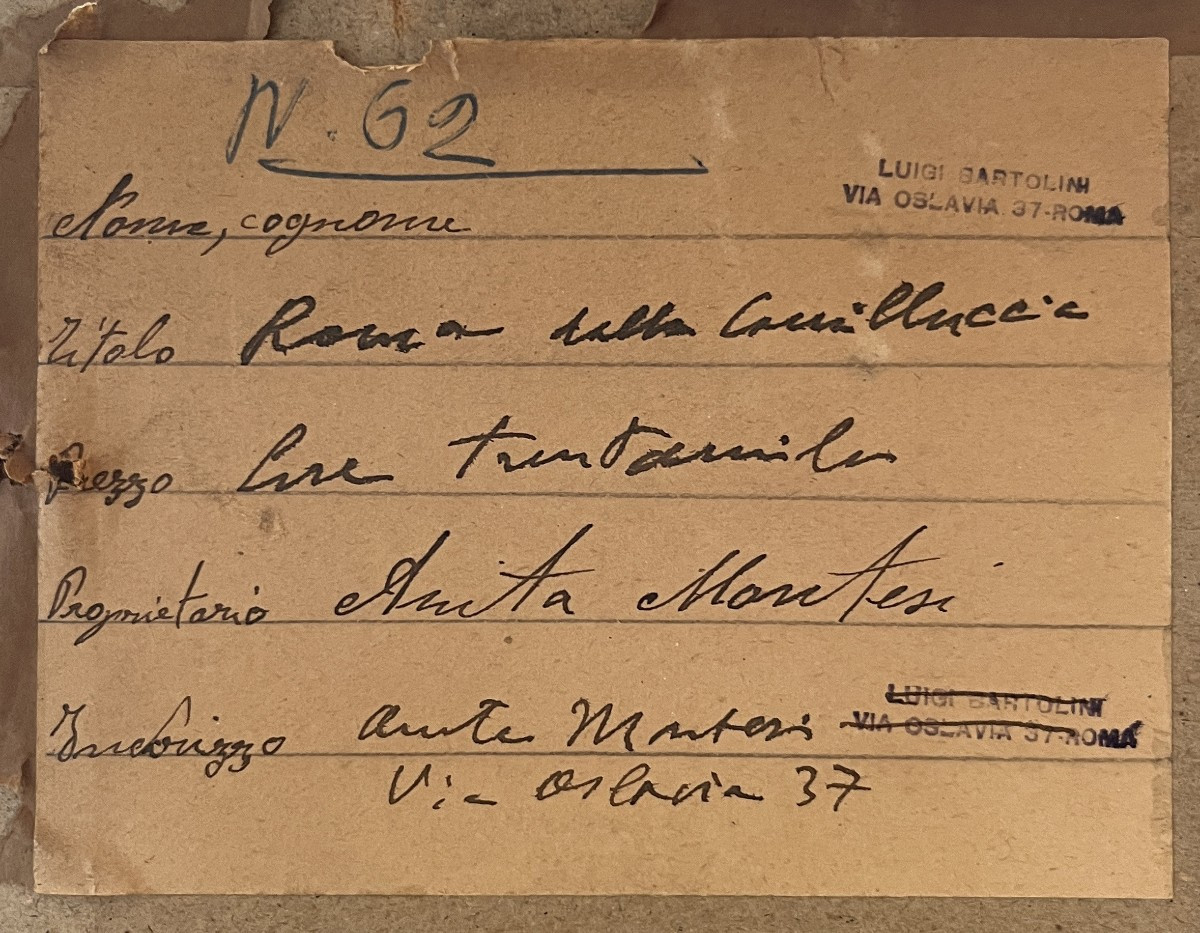 N. 62
LUIGI BARTOLINI
VIA OSLAVIA 37-ROMA
Nome, cognome
Titolo Roma dalla Camilluccia
Prezzo Lire trentamila
Proprietario Anita Montesi
Indirizzo Anita Montesi
LUIGI BARTOLINI
VIA OSLAVIA 37-ROMA
Via Oslavia 37